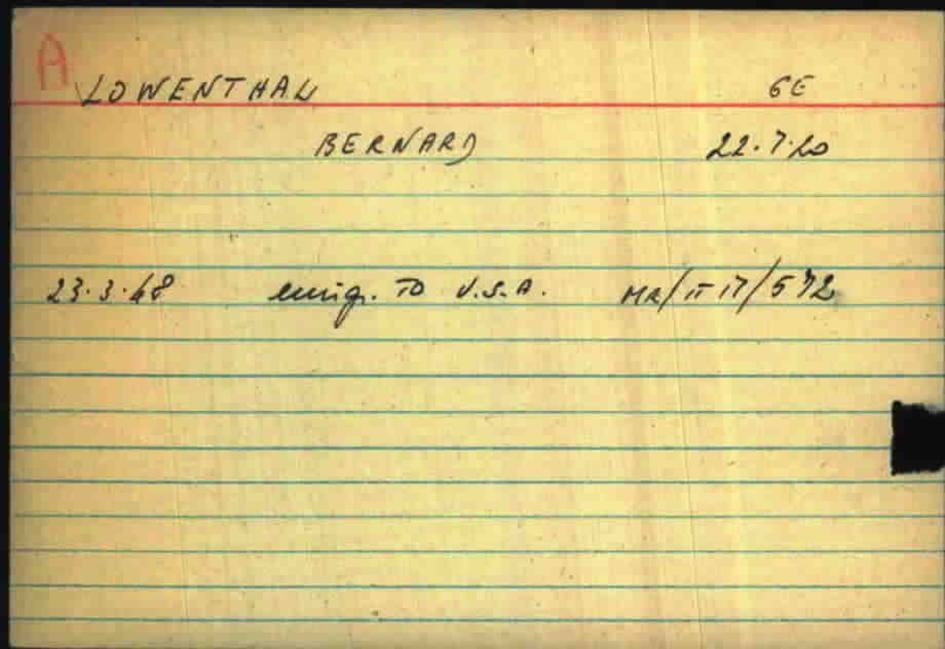 A
LOWENTHAL GE
BERNARD 22.7.20
23.3.48 emig. TO U.S.A. MR/IT IT/572